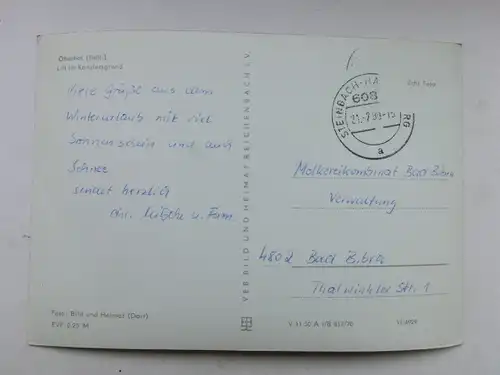 Oberhof (Thür.)
Lift im Kanzlersgrund
Viele Grüße aus dem
Winterurlaub mit viel
Sonnenschein und auch
Schnee
sendet herzlich
u. Fam.
Foto: Bild und Heimat
EVP 0,25 M
VEB BILD UND HEIMAT REICHENBACH I. V.
V 11 50 A
STEINBACH-HA RG
608
a
Molkereikombinat Bad Bibra
Verwaltung
4802 Bad Bibra
Thalwinkler Str. 1